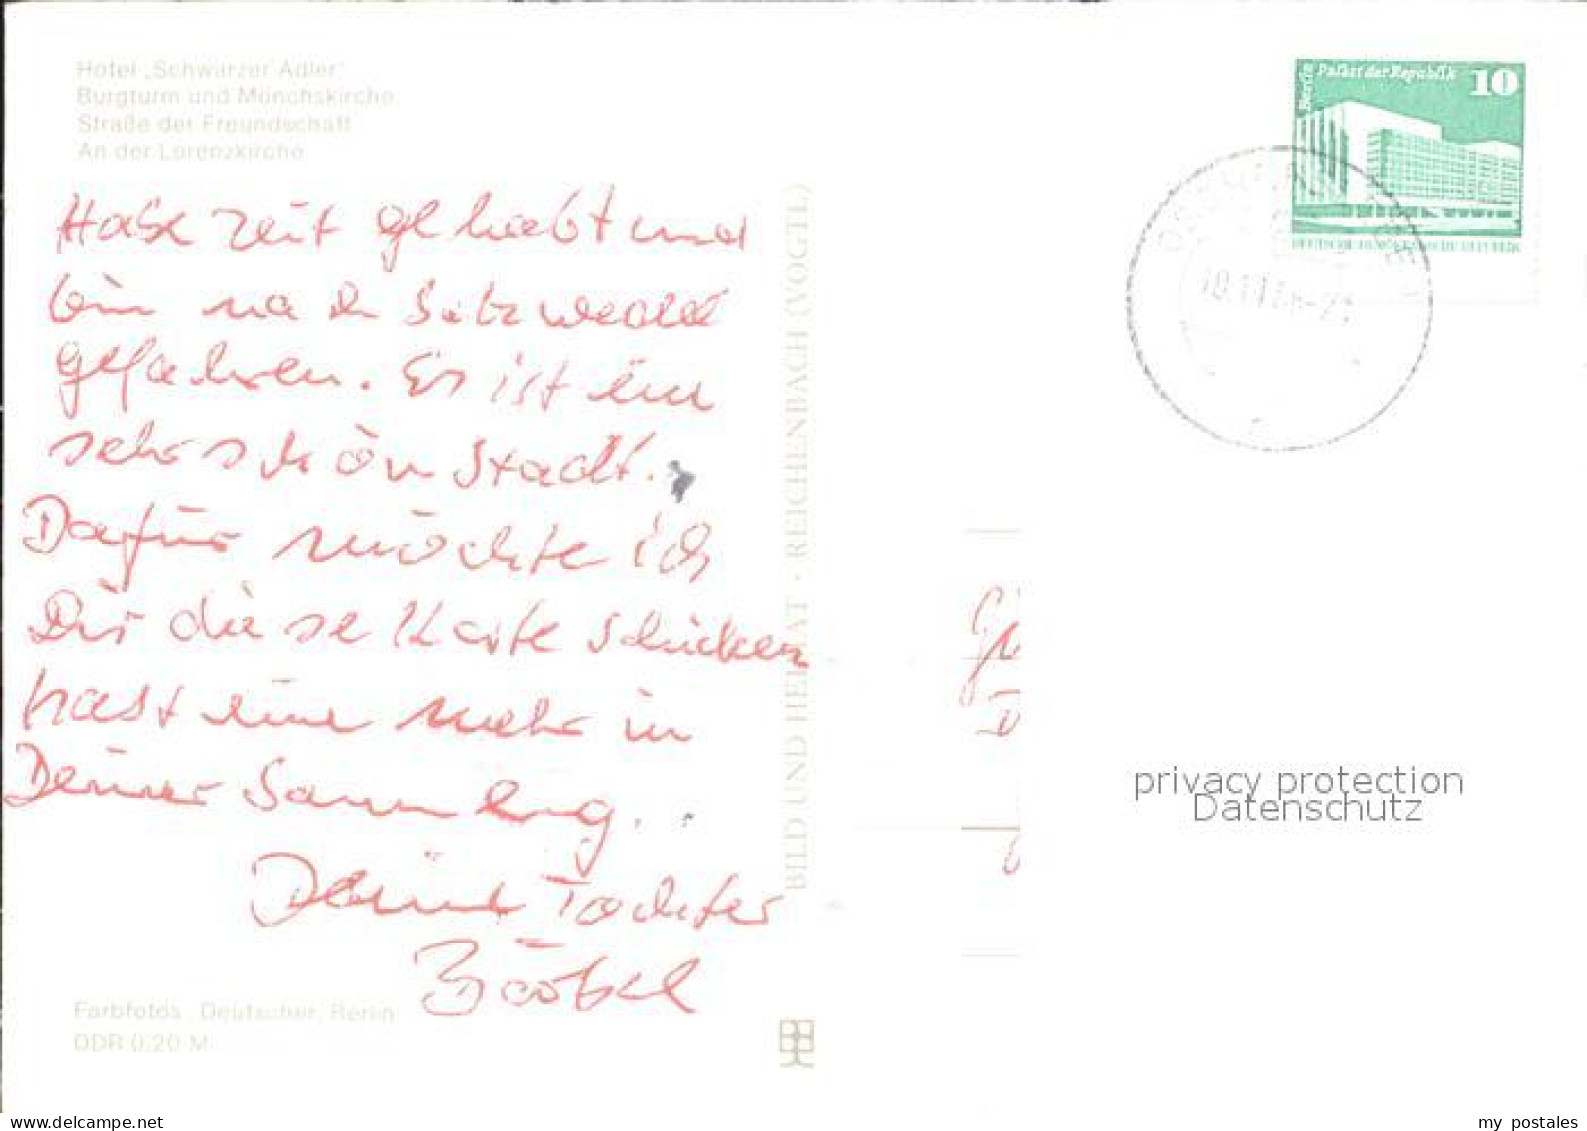 Hotel „Schwarzer Adler“
Burgturm und Mönchskirche
Straße der Freundschaft
An der Lorenzkirche
Habe Zeit gehabt und
bin nach Salzwedel
gefahren. Es ist ein
sehr schön Stadt.
Dafür möchte ich
Dir diese Karte schicken
hast eine mehr in
Deiner Sammlung.
Deine Tochter
Bärbel
Farbfotos: Deutscher, Berlin
DDR 0,20 M
BILD UND HEIMAT · REICHENBACH (VOGTL)
Berlin Palast der Republik 10
DEUTSCHE DEMOKRATISCHE REPUBLIK
privacy protection
Datenschutz
my postales